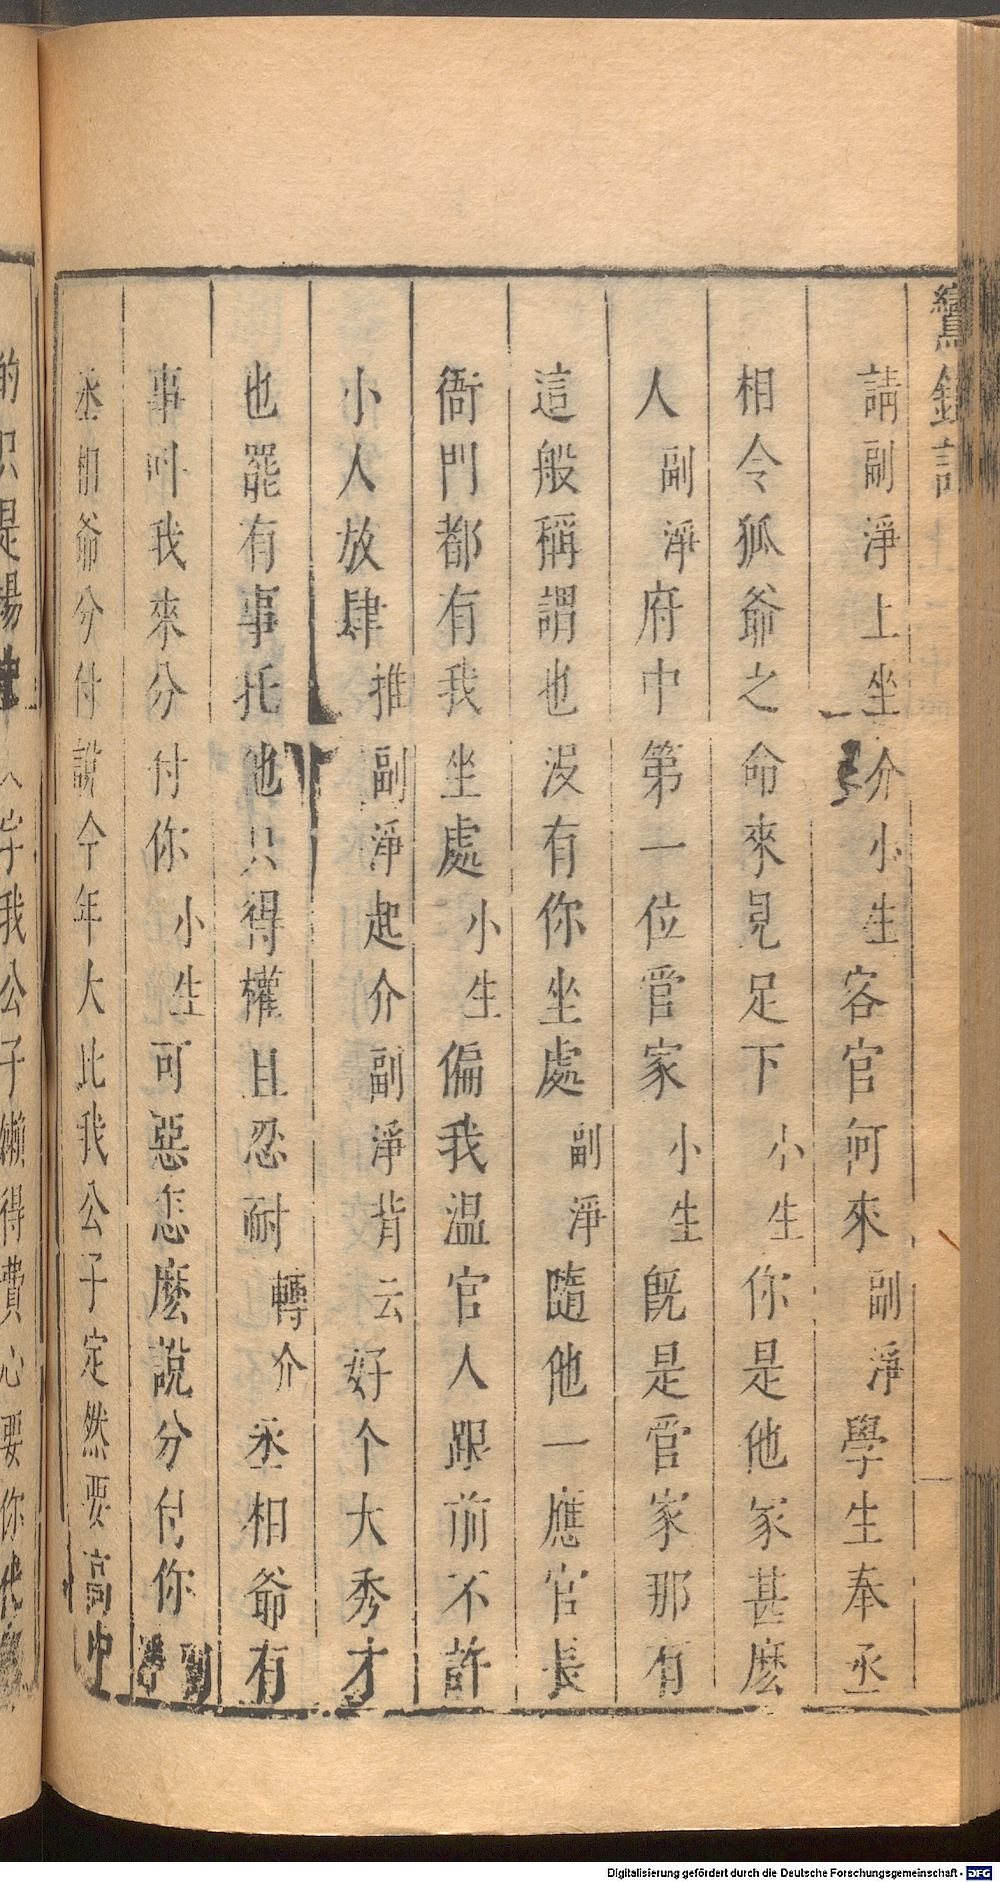 鸞鎞記
請副淨上坐介小生客官何來副淨學生奉丞
相令狐爺之命來見足下小生你是他家甚麽
人副淨府中第一位管家小生既是管家那有
這般稱謂也没有你坐處副淨隨他一應官長
衙門都有我坐處小生偏我温官人跟前不許
小人放肆推副淨起介副淨背云好个大秀才
也罷有事托他只得權且忍耐轉介丞相爺有
事叫我來分付你小生可惡怎麽說分付你副淨
丞相爺分付說今年大比我公子定然要高中
我公子懶得費心要你代
Digitalisierung gefördert durch die Deutsche Forschungsgemeinschaft - DFG